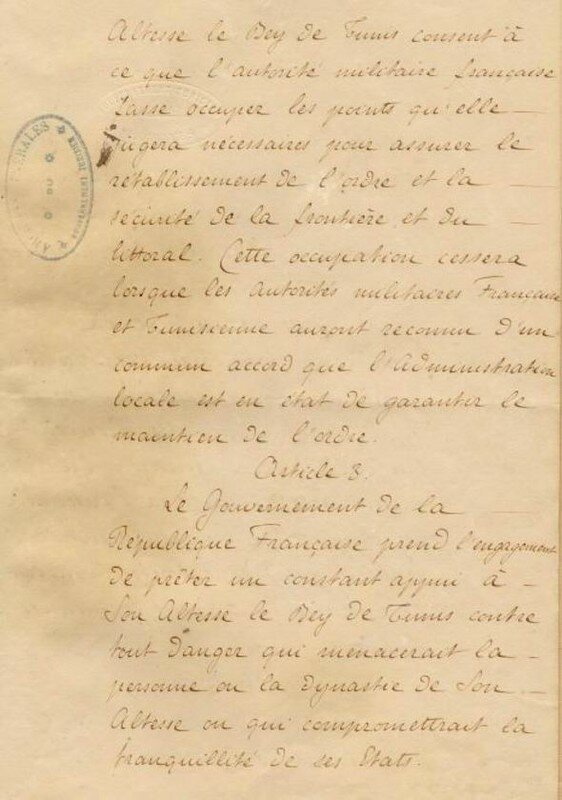 Altesse le Bey de Tunis consent à
ce que l'autorité militaire française
fasse occuper les points qu'elle —
jugera nécessaires pour assurer le
rétablissement de l'ordre et la —
sécurité de la frontière et du —
littoral. Cette occupation cessera
lorsque les autorités militaires Française
et Tunisienne auront reconnu d'un
commun accord que l'administration
locale est en état de garantir le
maintien de l'ordre.
Article 3.
Le Gouvernement de la
République Française prend l'engagement
de prêter un constant appui à —
Son Altesse le Bey de Tunis contre
tout danger qui menacerait la —
personne ou la dynastie de Son —
Altesse ou qui compromettrait la
tranquillité de ses Etats.